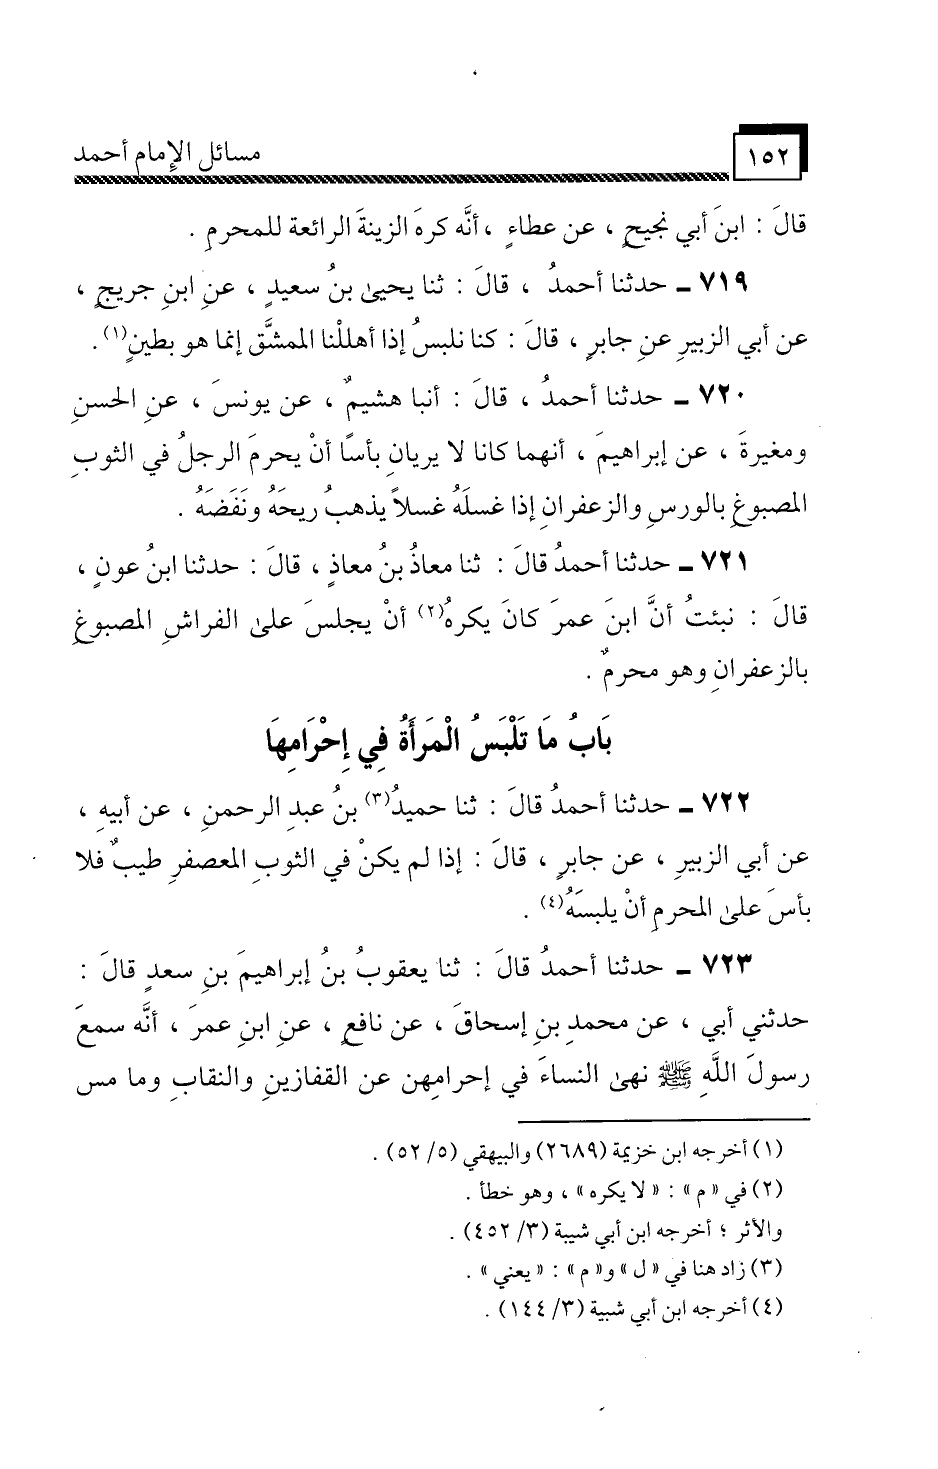 ١٥٢ مسائل الإمام أحمد
قالَ : ابنَ أبي نجيحٍ ، عن عطاءٍ ، أنَّه كرهَ الزينةَ الرائعة للمحرمِ .
٧١٩ ـ حدثنا أحمدُ ، قالَ : ثنا يحيىٰ بنُ سعيدٍ ، عنِ ابنِ جريجٍ ،
عن أبي الزبيرِ عنِ جابرٍ ، قالَ : كنا نلبسُ إذا أهللْنا الممشَّق إنما هو بطينٍ(١) .
٧٢٠ ـ حدثنا أحمدُ ، قالَ : أنبا هشيمٌ ، عن يونسَ ، عنِ الحسنِ
ومغيرةَ ، عن إبراهيمَ ، أنهما كانا لا يريانِ بأسًا أنْ يحرمَ الرجلُ في الثوبِ
المصبوغِ بالورسِ والزعفرانِ إذا غسلَهُ غسلاً يذهبُ ريحَهُ ونَفَضَهُ .
٧٢١ ـ حدثنا أحمدُ قالَ : ثنا معاذُ بنُ معاذٍ ، قالَ : حدثنا ابنُ عونٍ ،
قالَ : نبئتُ أنَّ ابنَ عمرَ كانَ يكرهُ(٢) أنْ يجلسَ علىٰ الفراشِ المصبوغِ
بالزعفرانِ وهو محرمٌ .
بَابُ مَا تَلْبَسُ الْمَرأَةُ فِي إِحْرَامِهَا
٧٢٢ ـ حدثنا أحمدُ قالَ : ثنا حميدُ(٣) بنُ عبدِ الرحمنِ ، عن أبيهِ ،
عن أبي الزبيرِ ، عن جابرٍ ، قالَ : إذا لم يكنْ في الثوبِ المعصفرِ طيبٌ فلا
بأسَ علىٰ المحرمِ أنْ يلبسَهُ(٤) .
٧٢٣ ـ حدثنا أحمدُ قالَ : ثنا يعقوبُ بنُ إبراهيمَ بنِ سعدٍ قالَ :
حدثني أبي ، عن محمدِ بنِ إسحاقَ ، عن نافعٍ ، عنِ ابنِ عمرَ ، أنَّه سمعَ
رسولَ اللَّهِ ﷺ نهىٰ النساءَ في إحرامهن عن القفازينِ والنقابِ وما مس
(١) أخرجه ابن خزيمة (٢٦٨٩) والبيهقي (٥/ ٥٢) .
(٢) في « م » : « لا يكره » ، وهو خطأ .
والأثر ؛ أخرجه ابن أبي شيبة (٣/ ٤٥٢) .
(٣) زاد هنا في « ل » و« م » : « يعني » .
(٤) أخرجه ابن أبي شيبة (٣/ ١٤٤) .